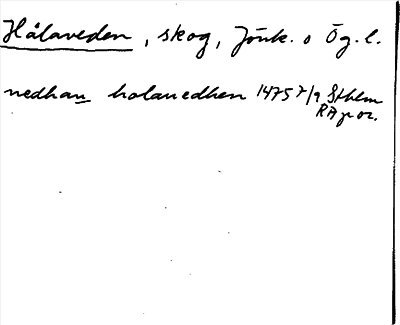 Hålaveden, skog, Jönk. o Ög. l.
nedhan holauedhen 1475 7/9 Sthlm
RA por.